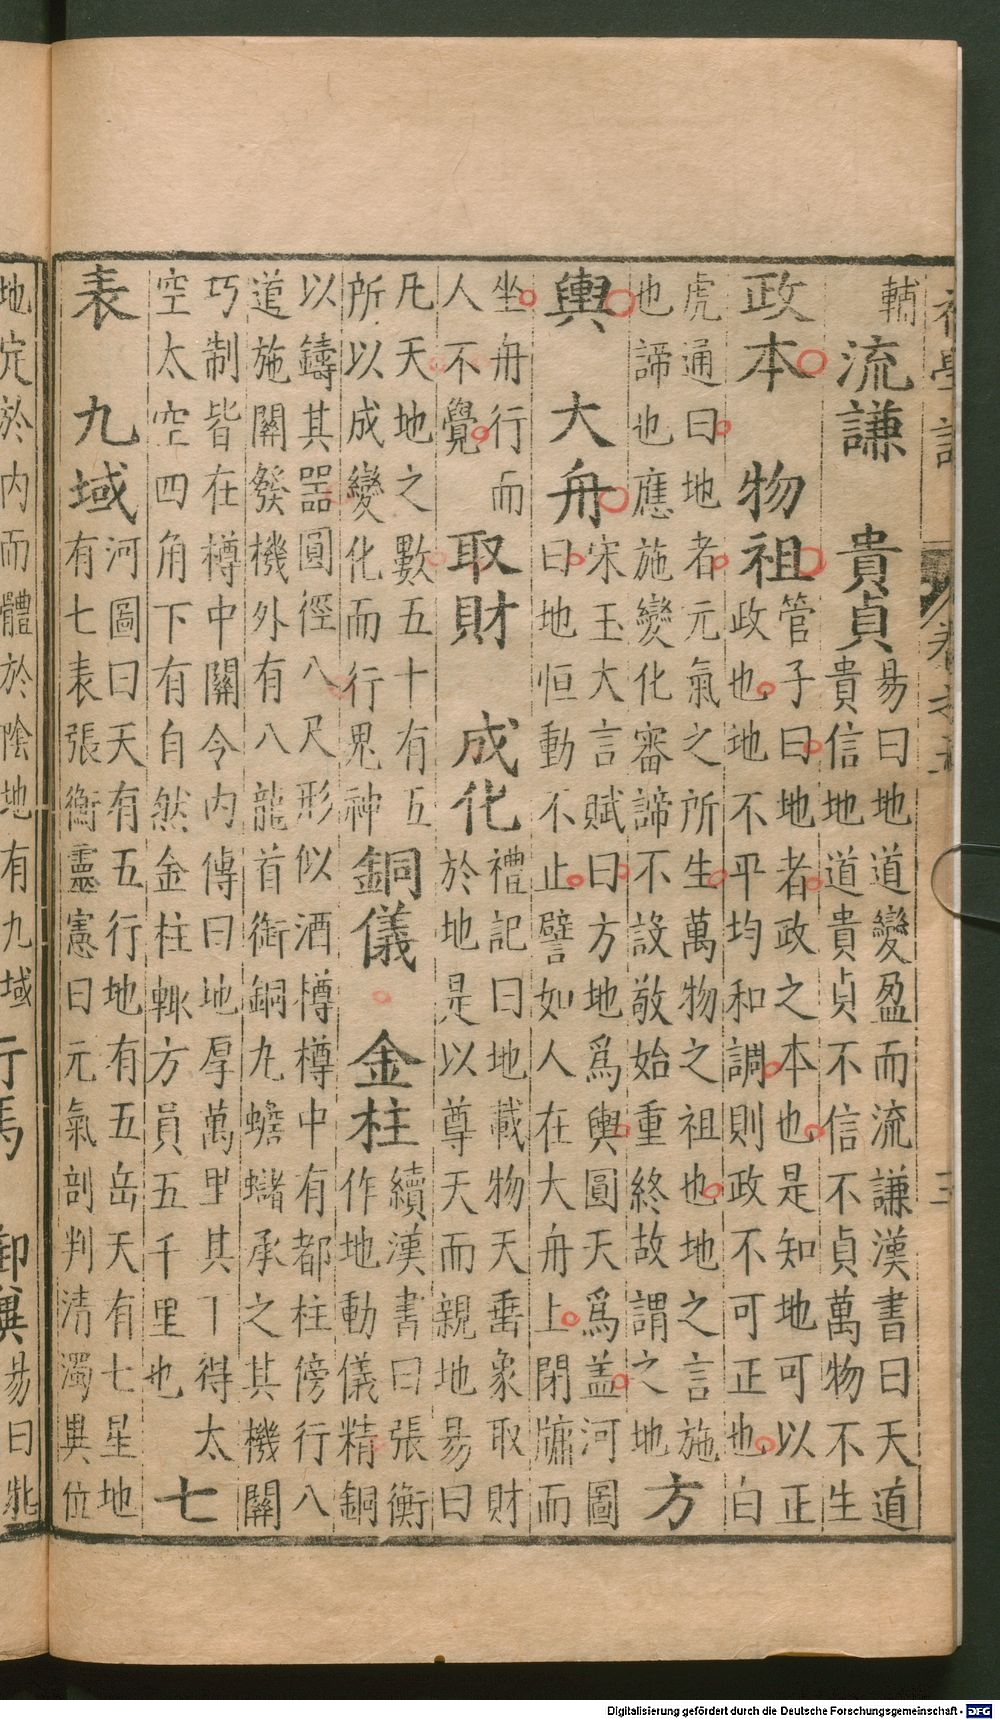 初學記 卷之五 三
輔
流謙 貴貞
易曰地道變盈而流謙漢書曰天道
貴信地道貴貞不信不貞萬物不生
政本 物祖
管子曰地者政之本也是知地可以正
政也地不平均和調則政不可正也白
虎通曰地者元氣之所生萬物之祖也地之言施
也諦也應施變化審諦不設敬始重終故謂之地
方
輿 大舟
宋玉大言賦曰方地爲輿圓天爲盖河圖
曰地恒動不止譬如人在大舟上閉牖而
坐舟行而
人不覺
取財 成化
禮記曰地載物天垂象取財
於地是以尊天而親地易曰
凡天地之數五十有五
所以成變化而行鬼神
銅儀 金柱
續漢書曰張衡
作地動儀精銅
以鑄其器圓徑八尺形似酒樽樽中有都柱傍行八
道施關發機外有八龍首銜銅丸蟾蠩承之其機關
巧制皆在樽中關令内傳曰地厚萬里其丅得太
空太空四角下有自然金柱輙方員五千里也
七
表 九域
河圖曰天有五行地有五岳天有七星地
有七表張衡靈憲曰元氣剖判清濁異位
地定於内而體於陰地有九域
行馬 御
易曰牝
Digitalisierung gefördert durch die Deutsche Forschungsgemeinschaft - DFG